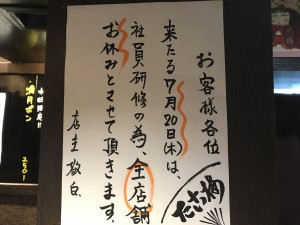 お客様各位
来たる7月20日(木)は、
社員研修の為、全店舗
お休みとさせて頂きます。
店主敬白
2501